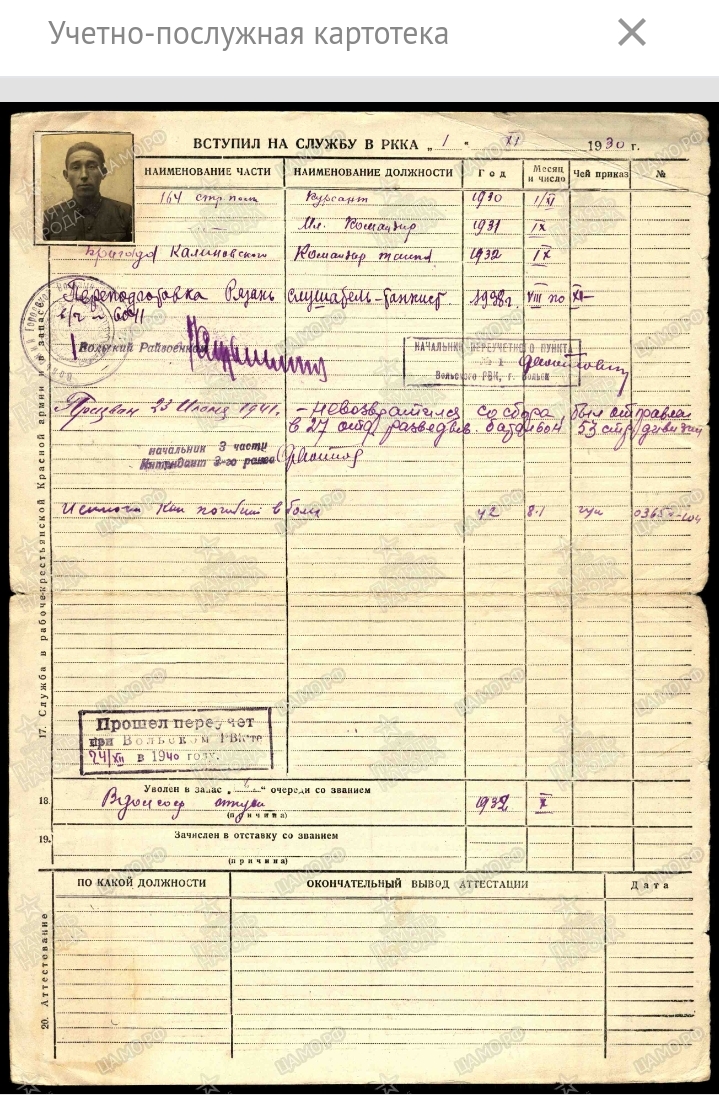 Учетно-послужная картотека
ВСТУПИЛ НА СЛУЖБУ В РККА „ 1 “ XI 1930 г.
НАИМЕНОВАНИЕ ЧАСТИ НАИМЕНОВАНИЕ ДОЛЖНОСТИ Год Месяц и число Чей приказ №
164 стр. полк Курсант 1930 1/XI
Мл. Командир 1931 IX
Бригада Калиновского Командир танка 1932 IX
Переподготовка Рязань слушатель-танкист. 1938г. VIII по XI
в/ч
Вольский Райвоенком
НАЧАЛЬНИК ПЕРЕУЧЕТНОГО ПУНКТА
№ 1
Вольского РВК, г. Вольск
Призван 23 Июня 1941. – невозвратился со сбора был отправлен
в 27 отд. разведыв. батальон 53 стр. дивизии
начальник 3 части
Интендант 3-го ранга
как погибший в бою 42 8.1 гук
17. Служба в рабоче-крестьянской Красной армии и в запасе
Прошел переучет
при Вольском РВК-те
24/XII в 1940 году.
18. Уволен в запас „ “ очереди со званием
1932 X
(причина)
19. Зачислен в отставку со званием
(причина)
ПО КАКОЙ ДОЛЖНОСТИ ОКОНЧАТЕЛЬНЫЙ ВЫВОД АТТЕСТАЦИИ Дата
20. Аттестование
ПАМЯТЬ НАРОДА
ЦАМО РФ